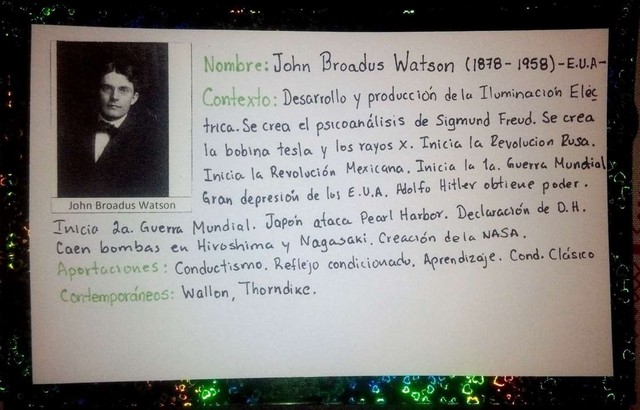 Nombre: John Broadus Watson (1878-1958)-E.U.A-
Contexto: Desarrollo y producción de la Iluminación Eléc
trica. Se crea el psicoanálisis de Sigmund Freud. Se crea
la bobina tesla y los rayos x. Inicia la Revolucion Rusa.
Inicia la Revolución Mexicana. Inicia la 1a. Guerra Mundial
Gran depresión de los E.U.A. Adolfo Hitler obtiene poder.
John Broadus Watson
Inicia 2a. Guerra Mundial. Japón ataca Pearl Harbor. Declaración de D.H.
Caen bombas en Hiroshima y Nagasaki. Creación de la NASA.
Aportaciones: Conductismo. Reflejo condicionado. Aprendizaje. Cond. Clásico
Contemporáneos: Wallon, Thorndike.